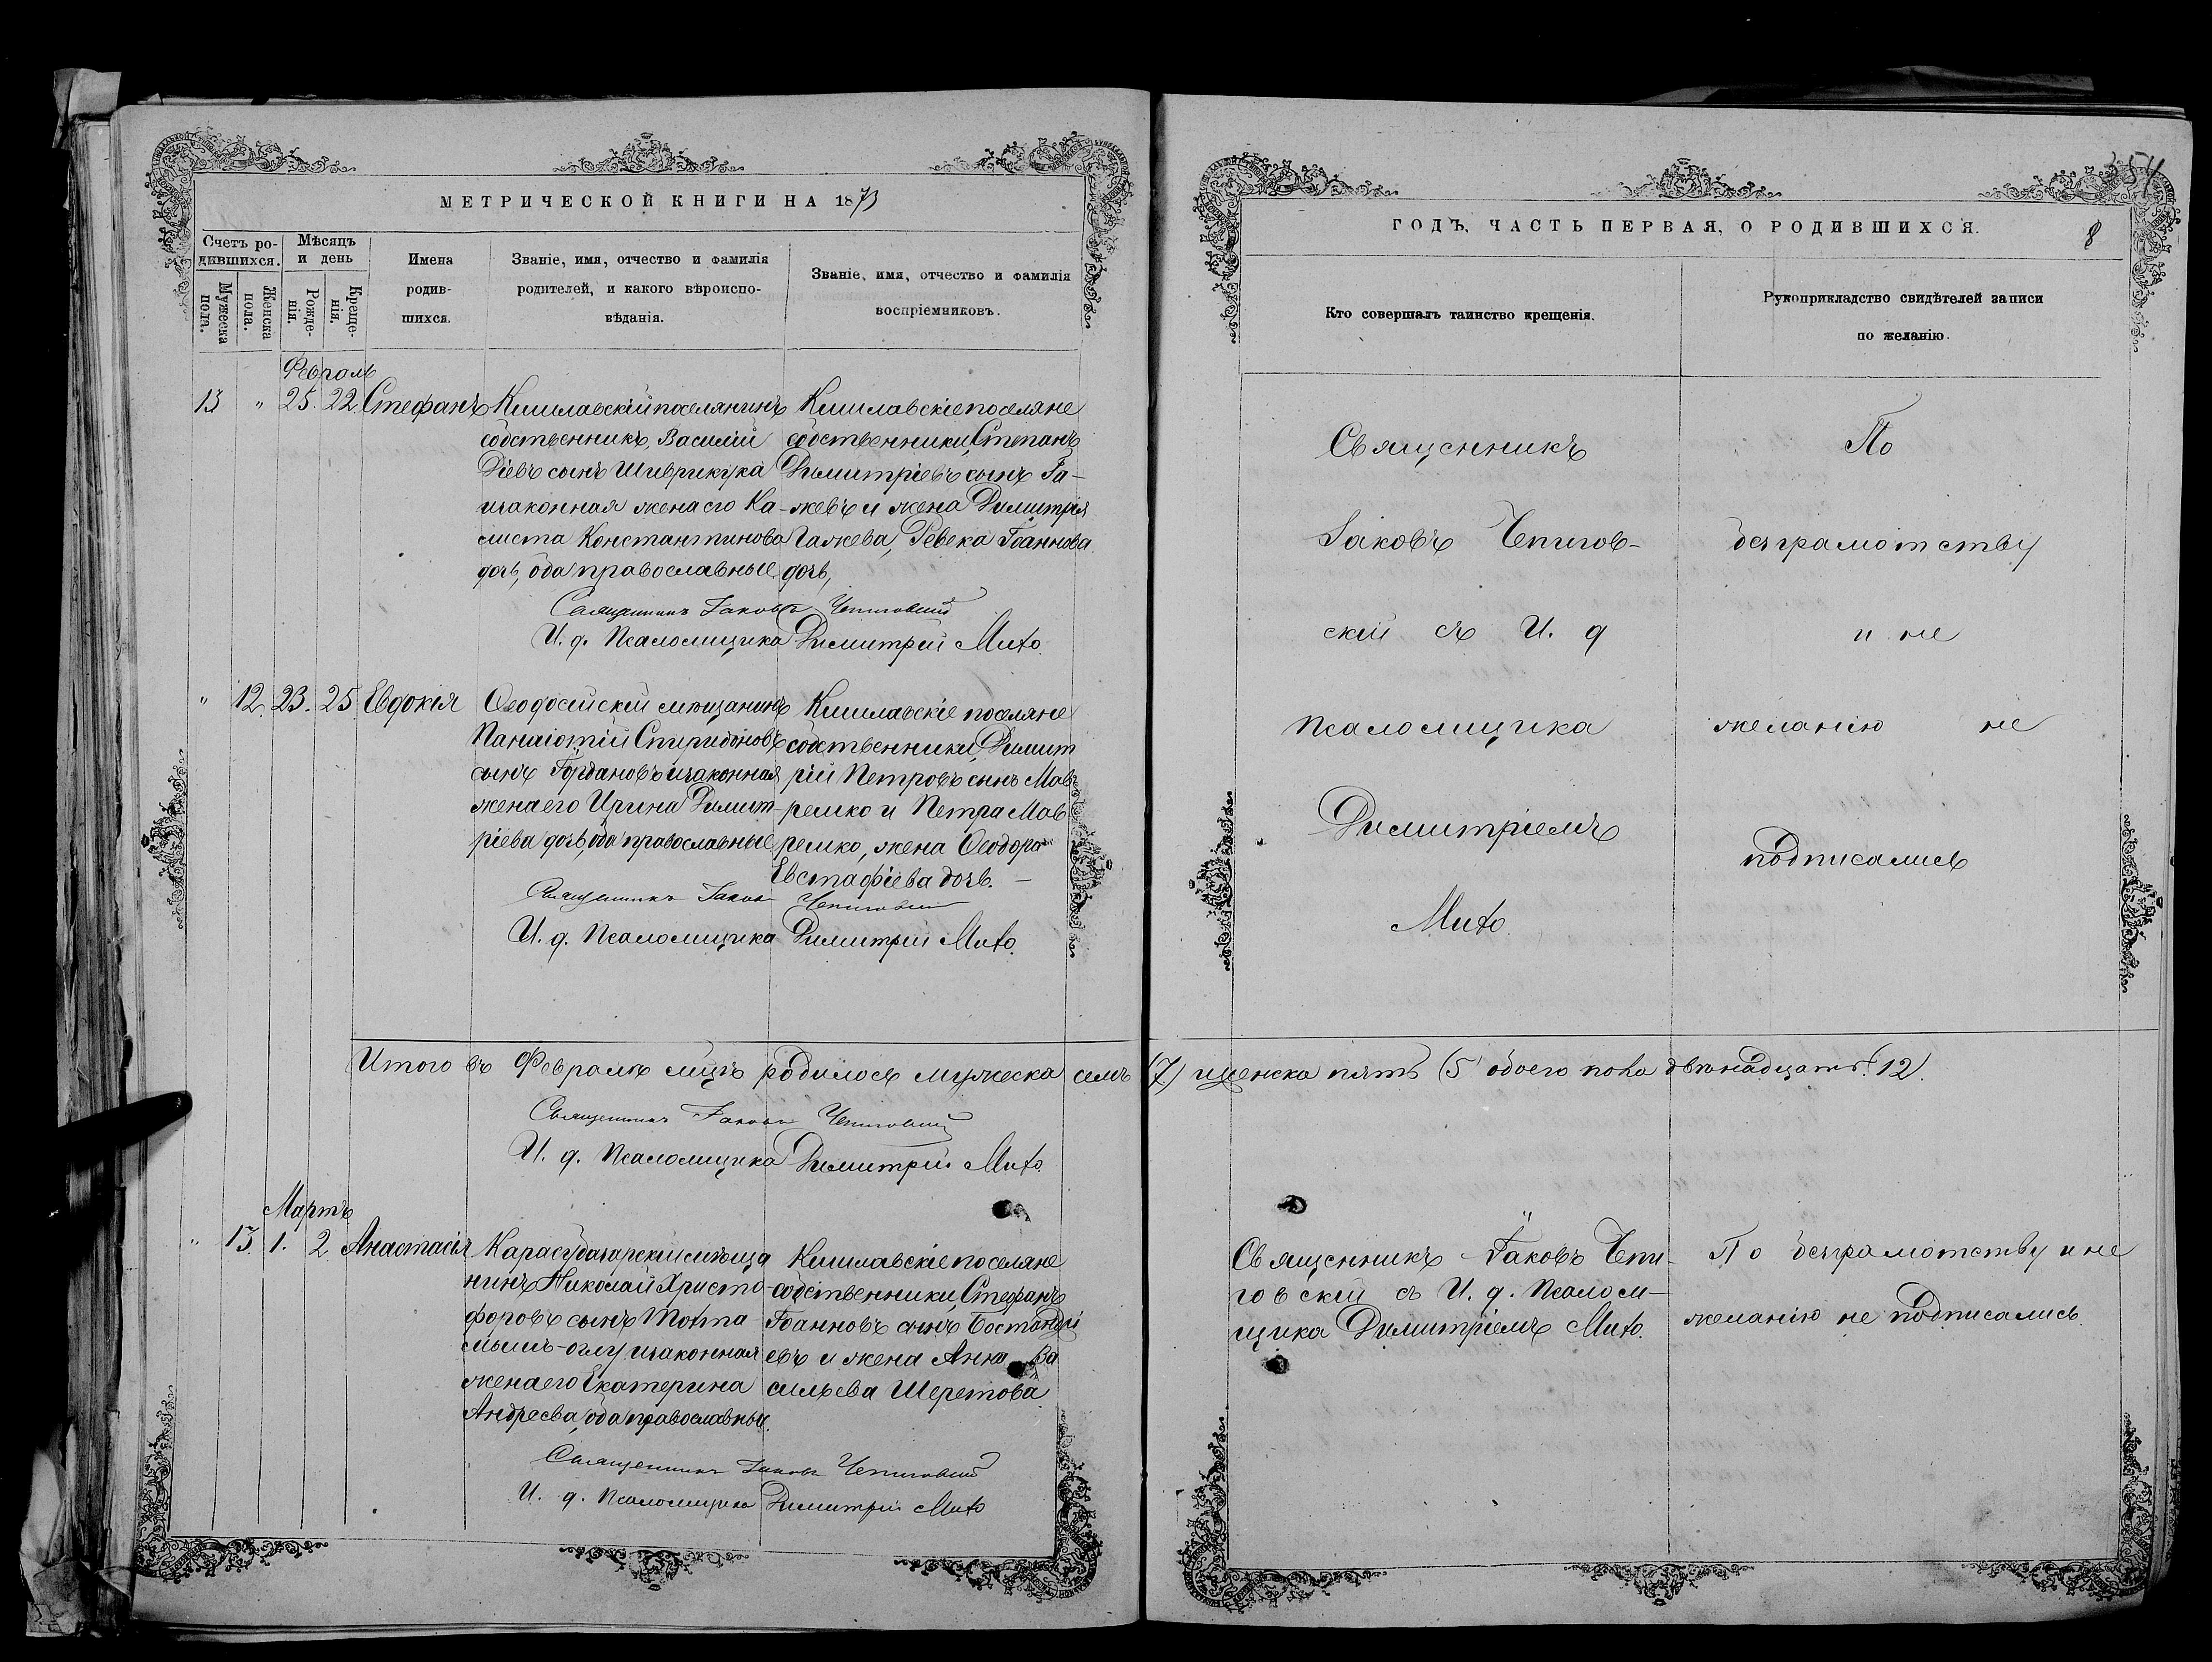 МЕТРИЧЕСКОЙ КНИГИ НА 1873
Счетъ ро-
дившихся.
Мѣсяцъ
и день
Мужеска
пола.
Женска
пола.
Рожде-
нія.
Креще-
нія.
Имена
родив-
шихся.
Званіе, имя, отчество и фамилія
родителей, и какого вѣроиспо-
вѣданія.
Званіе, имя, отчество и фамилія
воспріемниковъ.
Февраль
13 " 25. 22. Стефанъ
Кишлавскій поселянинъ
собственникъ, Василій
сынъ
и законная жена его Ка-
листа Константинова
дочь, оба православные
Кишлавскіе поселяне
собственники, Степанъ
Димитріевъ сынъ Га-
жевъ и жена Димитрія
Гажева, Ревека Іоаннова
дочь,
Священникъ Іаковъ Чепиговскій
И. д. Псаломщика Димитрій Мито.
" 12. 23. 25. Евдокія
Ѳеодосійскій мѣщанинъ
Панаіотій Спиридоновъ
сынъ и законная
жена его Ирина Димит-
ріева дочь, оба православные
Кишлавскіе поселяне
собственники, Димит
рій Петровъ сынъ Мав
решко и Петра Мав
решко, жена Ѳеодора
Евстафіева дочь. —
Священникъ Іаковъ Чепиговскій
И. д. Псаломщика Димитрій Мито.
Итого въ Февралѣ мцѣ родилось мужеска семь (7) и женска пять (5 обоего пола двѣнадцать (12).
Священникъ Іаковъ Чепиговскій
И. д. Псаломщика Димитрій Мито.
Мартъ
" 13. 1. 2. Анастасія
Карасубазарскій мѣща
нинъ Николай Христо
форовъ сынъ
и законная
жена его Екатерина
Андреева, оба православные.
Кишлавскіе поселяне
собственники, Стефанъ
Іоанновъ сынъ Бостанджі
евъ и жена Анна Ва
сильева Шеретова.
Священникъ Іаковъ Чепиговскій
И. д. Псаломщика Димитрій Мито
354
ГОДЪ, ЧАСТЬ ПЕРВАЯ, О РОДИВШИХСЯ.
8
Кто совершалъ таинство крещенія.
Рукоприкладство свидѣтелей записи
по желанію.
Священникъ
Іаковъ Чепигов-
скій съ И. д
Псаломщика
Димитріемъ
Мито.
По
безграмотству
и не
желанію не
подписались
Священникъ Іаковъ Чепи-
говскій съ И. д. Псалом-
щика Димитріемъ Мито.
По безграмотству и не
желанію не подписались.